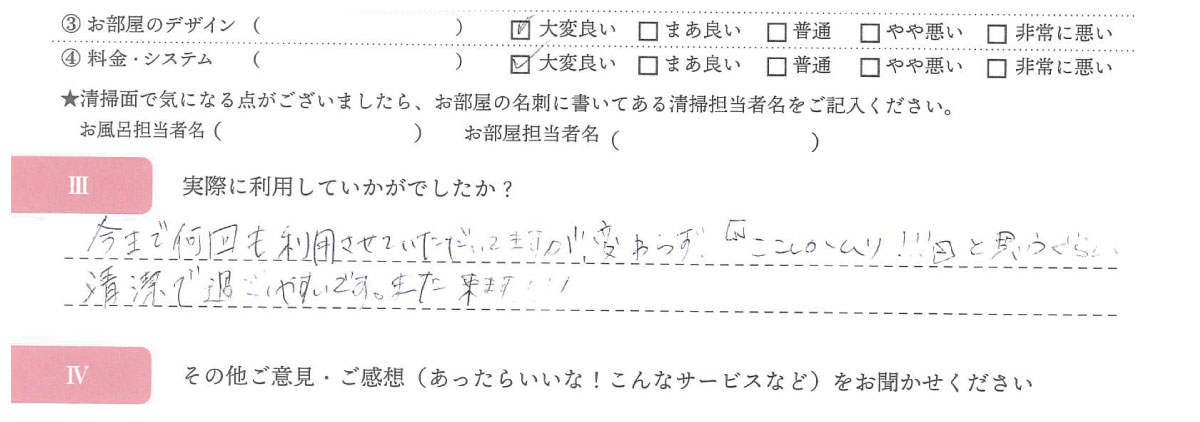 ③ お部屋のデザイン （　　　　　） ☑ 大変良い □ まあ良い □ 普通 □ やや悪い □ 非常に悪い
④ 料金・システム （　　　　　） ☑ 大変良い □ まあ良い □ 普通 □ やや悪い □ 非常に悪い
★清掃面で気になる点がございましたら、お部屋の名刺に書いてある清掃担当者名をご記入ください。
お風呂担当者名（　　　　　） お部屋担当者名（　　　　　）
Ⅲ 実際に利用していかがでしたか？
今まで何回も利用させていただいてますが、変わらず、『ここしかムリ!!!』と思うぐらい
清潔で過ごしやすいです。また来ます!!!
Ⅳ その他ご意見・ご感想（あったらいいな！こんなサービスなど）をお聞かせください